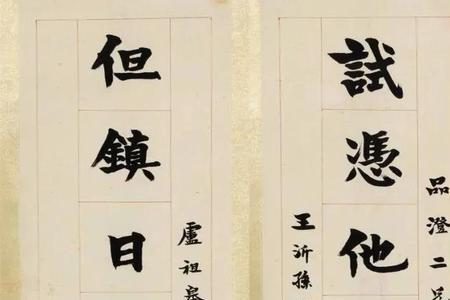 品澄二兄
試憑他
王沂孫
但鎮日
盧祖皋